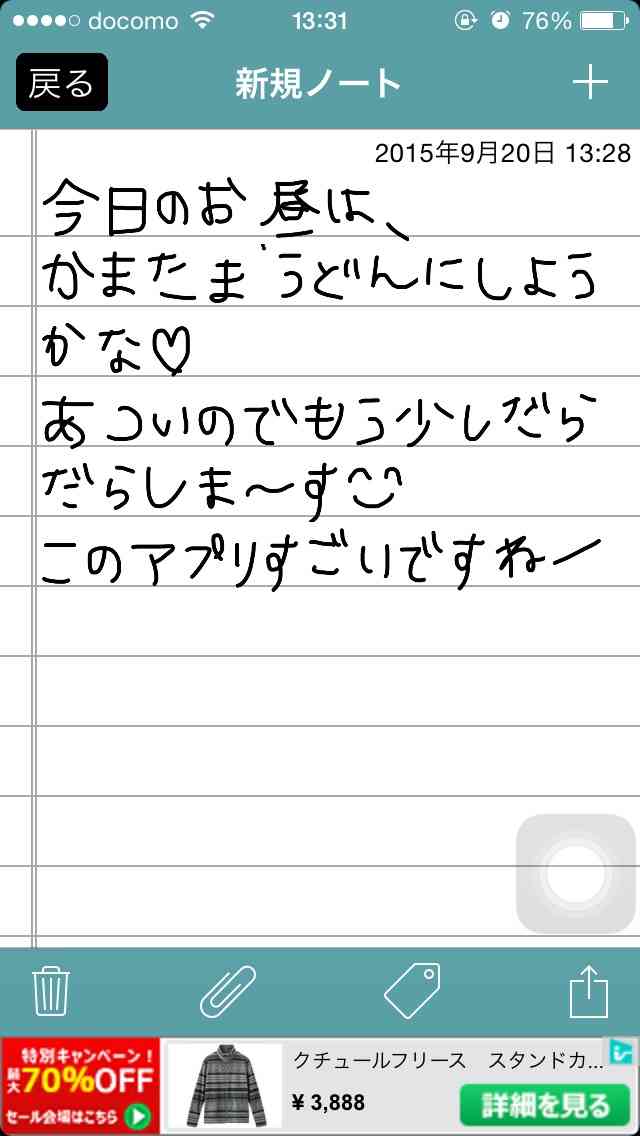 docomo 13:31 76%
戻る 新規ノート
2015年9月20日 13:28
今日のお昼は、
かまたまうどんにしよう
かな♡
あついのでもう少しだら
だらしま〜す
このアプリすごいですねー
特別キャンペーン！
最大70%OFF
セール会場はこちら
クチュールフリース　スタンドカ...
¥ 3,888
詳細を見る